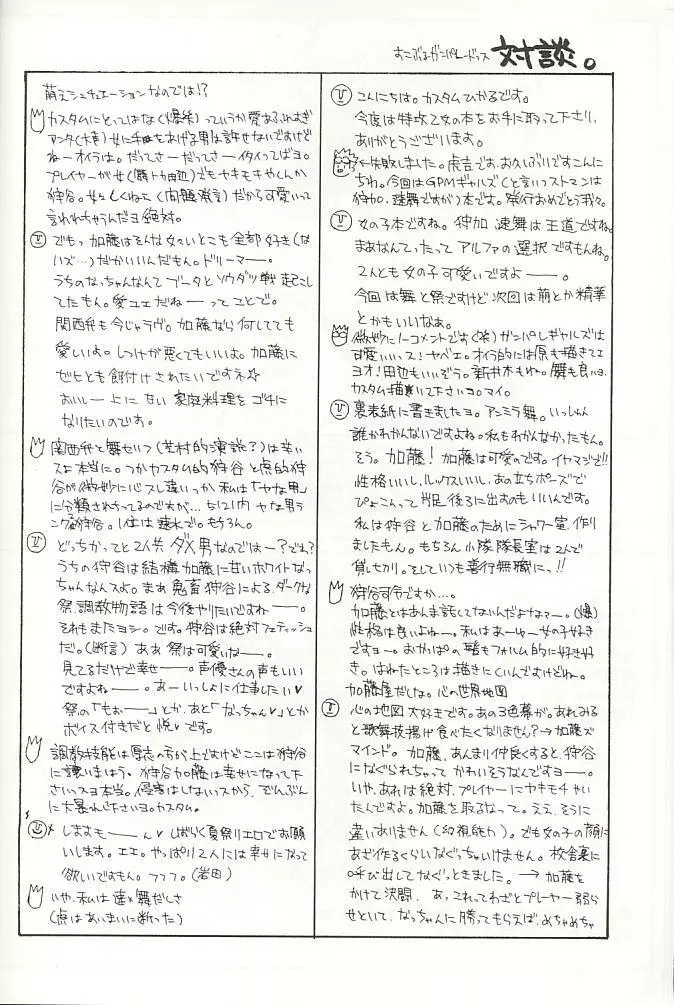 すこぶるガンパレードックス 対談。
こんにちは。カスタムひかるです。
今度は特攻乙女の本をお手に取って下さり、
ありがとうございます。
←失敗しました。虎吉です、お久しぶりですこんに
ちわ。今回はGPMギャルズ(と言いつつストマンは
狩加、速舞ですが)本です。発行おめでとう我々。
女の子本ですね。狩加 速舞は王道ですね。
まあなんてったって アルファの選択ですもんね。
2人とも女の子可愛いですよー―。
今回は舞と祭ですけど次回は萌とか精華
とかもいいなぁ。
微妙にノーコメントです(笑)ガンパレギャルズは
可愛いいっス!ヤベエ。オイラ的には原も描きてェ
ヨオ!田辺もいいぞう。新井木もね。勝も良いョ
カスタム描いて下さいヨ。マイ。
裏表紙に書きましたヨ。アンミラ舞。いっしゅん
誰かわかんないですよね。私もわかんなかったもん。
そう。加藤!加藤は可愛のです。イヤマジで!!
性格いいし、ルックスいいし、あの立ちポーズで
ぴょこんって片足後ろに出すのもいいんです。
私は狩谷と加藤のためにシャワー室、作り
ましたもん。もちろん小隊隊長室は2人で
貸し切り。そしていつも善行無職にっ!!
狩谷司令ですか…。
加藤とはあんま話してないんだよなァー。(爆)
性格は良いよゅー。私はあーゆー女の子好き
ですョー。おかっぱの髪もフォルム的に好き好
き。はねたところは描きにくいんですけどね。
加藤屋だしな。心の世界地図
心の地図大好きです。あの3色幕が。あれみる
と歌舞伎揚げ食べたくなりません?→加藤ズ
マインド。 加藤、あんまり仲良くすると、狩谷
になぐられちゃって かわいそうなんですヨー―。
いや、あれは絶対、プレイヤーにヤキモチやい
たんですよ。加藤を取るなって。ええ、そうに
違いありません(幻視能力)。でも女の子の顔に
あざ作るくらいなぐっちゃいけません。校舎裏に
呼び出してなぐっときました。→加藤を
かけて決闘。 あ、これってわざとプレーヤー弱ら
せといて、なっちゃんに勝ってもらえば、めちゃめちゃ
萌えシュチュエーションなのでは!?
カスタムにとってはな(爆笑)っていうか愛あふれすぎ
アンタ(大声)女に手をあげる男は許せないですけど
ねーオイラは。だってさーだってさーイタイってばヨ。
プレイヤーが女でもヤキモキやくんか
狩谷。女々しくねェ(問題発言)だから可愛いって
言われちゃうんだヨ絶対。
でもっ加藤はそんな女々いとこも全部好き(な
ハズ…)だかいいんだもん。ドリーマー―。
うちのなっちゃんなんてブータとソウダツ戦起こし
てたもん。愛ユエだねーーってことで。
関西弁も今じゃラヴ。加藤なら何しても
愛しいよ。しつけが悪くてもいいよ。加藤に
ゼヒとも餌付けされたいですネ☆
おいしー上に安い家庭料理をゴチに
なりたいのです。
関西弁と舞せいつ(芝村的演説?)は辛い
スよ本当に。つかカスタム的狩谷と虎的狩
谷が微妙に心スレ違いっつか私は「ヤな男」
に分類されちってるのですが…。ちなみにヤな男ラ
ンク2位狩谷。1位は速水で。もちろん。
どっちかってと2人共、ダメ男なのではー?でれ?
うちの狩谷は結構加藤に甘いホワイトなっ
ちゃんなんスよ。まあ鬼畜狩谷によるダークな
祭調教物語は今後やりたいですねー―。
それもまたヨシ。です。狩谷は絶対フェティッシュ
だ。(断言)ああ祭は可愛いねー―。
見てるだけで幸せー―。声優さんの声もいい
ですよねー―。あーいっしょに仕事したい♥
祭の「もぉー―」とか、あと「なっちゃん♥」とか
ボイス付きだと悦♥です。
調教技能は厚志の方が上ですけどここは狩谷
に譲いましょう。狩谷加藤は幸せになって下
さいっスヨ本当。侵害はしないスから、ぞんぶん
に大暴れ下さいヨ。カスタム。
しますもー―ん♥しばらく夏祭りエロでお願
いします。エエ。やっぱり2人には幸せになって
欲しいですもん。フフフ。(岩田)
いや、私は速×舞だしさ
(虎はあいまいに断った)